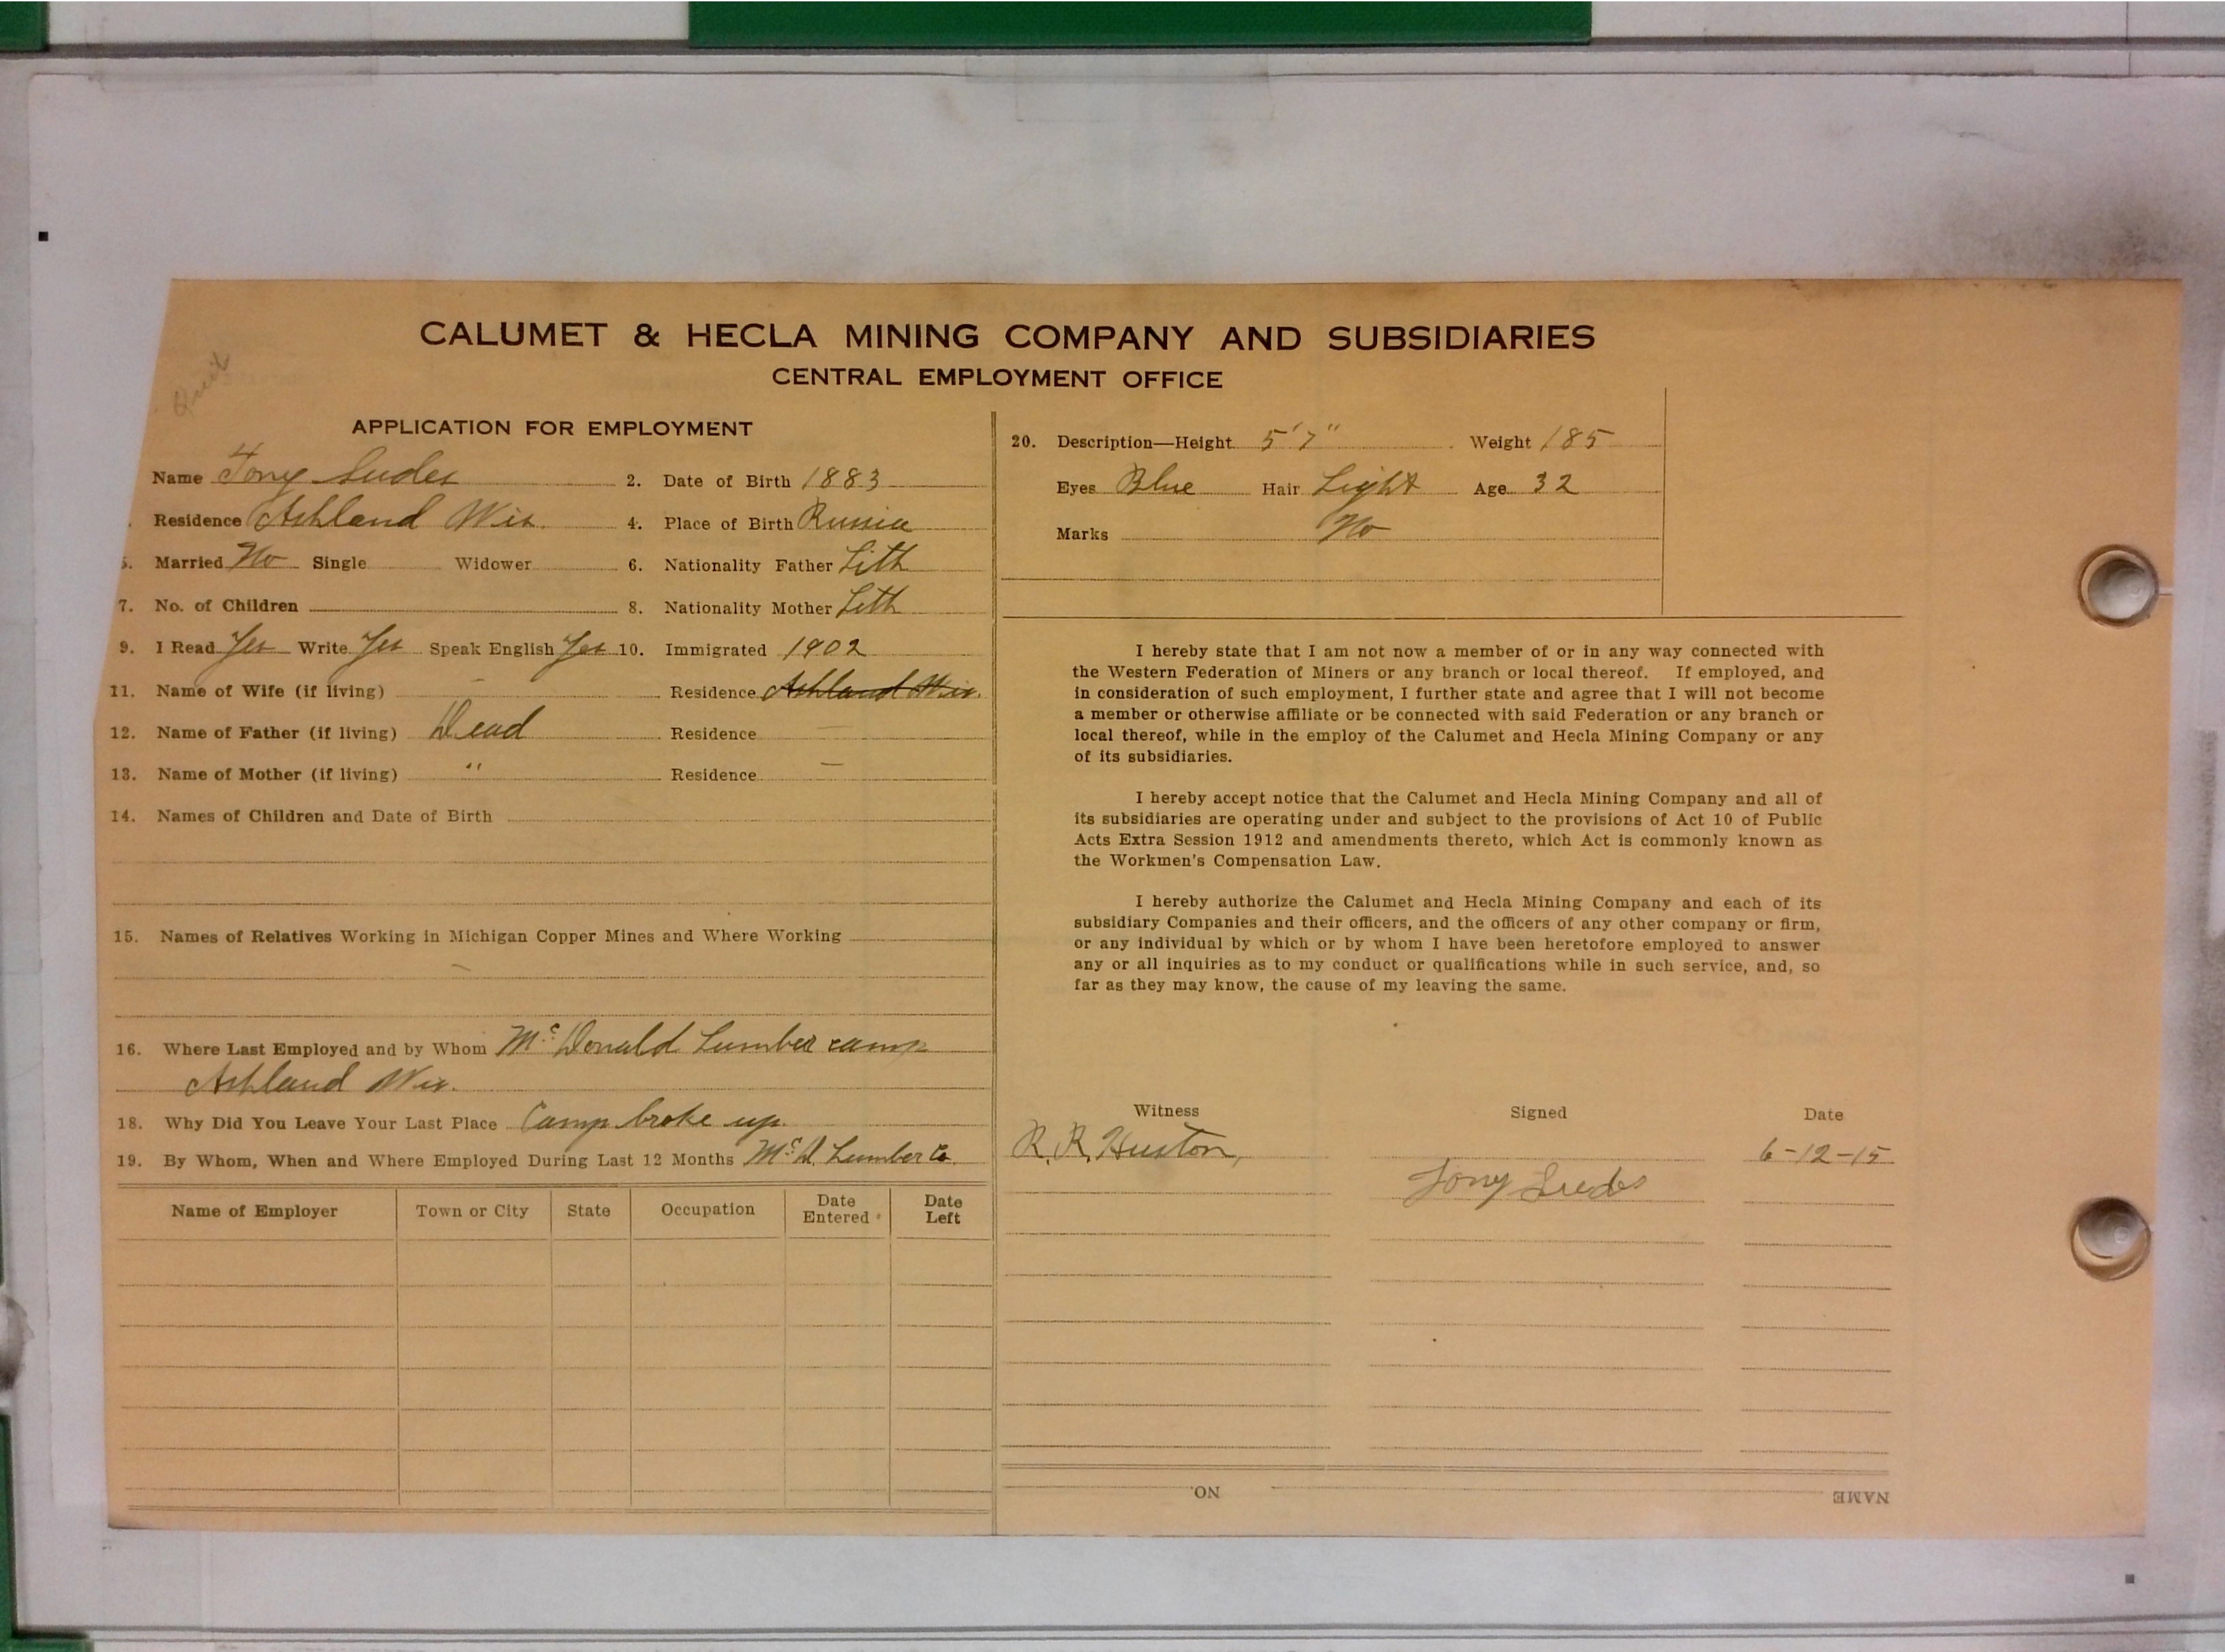 CALUMET & HECLA MINING COMPANY AND SUBSIDIARIES
CENTRAL EMPLOYMENT OFFICE
Quit
APPLICATION FOR EMPLOYMENT
Name Tony Sudes 2. Date of Birth 1883
Residence Ashland Wis. 4. Place of Birth Russia
5. Married No Single Widower 6. Nationality Father Lith
7. No. of Children 8. Nationality Mother Lith
9. I Read Yes Write Yes Speak English Yes 10. Immigrated 1902
11. Name of Wife (if living) - Residence Ashland Wis.
12. Name of Father (if living) Dead Residence —
13. Name of Mother (if living) " Residence —
14. Names of Children and Date of Birth
15. Names of Relatives Working in Michigan Copper Mines and Where Working
—
16. Where Last Employed and by Whom McDonald Lumber camp
Ashland Wis.
18. Why Did You Leave Your Last Place Camp broke up.
19. By Whom, When and Where Employed During Last 12 Months McD. Lumber Co.
Name of Employer Town or City State Occupation Date Entered Date Left
20. Description—Height 5'7" Weight 185
Eyes Blue Hair Light Age 32
Marks No
I hereby state that I am not now a member of or in any way connected with
the Western Federation of Miners or any branch or local thereof. If employed, and
in consideration of such employment, I further state and agree that I will not become
a member or otherwise affiliate or be connected with said Federation or any branch or
local thereof, while in the employ of the Calumet and Hecla Mining Company or any
of its subsidiaries.
I hereby accept notice that the Calumet and Hecla Mining Company and all of
its subsidiaries are operating under and subject to the provisions of Act 10 of Public
Acts Extra Session 1912 and amendments thereto, which Act is commonly known as
the Workmen's Compensation Law.
I hereby authorize the Calumet and Hecla Mining Company and each of its
subsidiary Companies and their officers, and the officers of any other company or firm,
or any individual by which or by whom I have been heretofore employed to answer
any or all inquiries as to my conduct or qualifications while in such service, and, so
far as they may know, the cause of my leaving the same.
Witness Signed Date
R. R. Huston, 6-12-15
Tony Sudes
NO. NAME